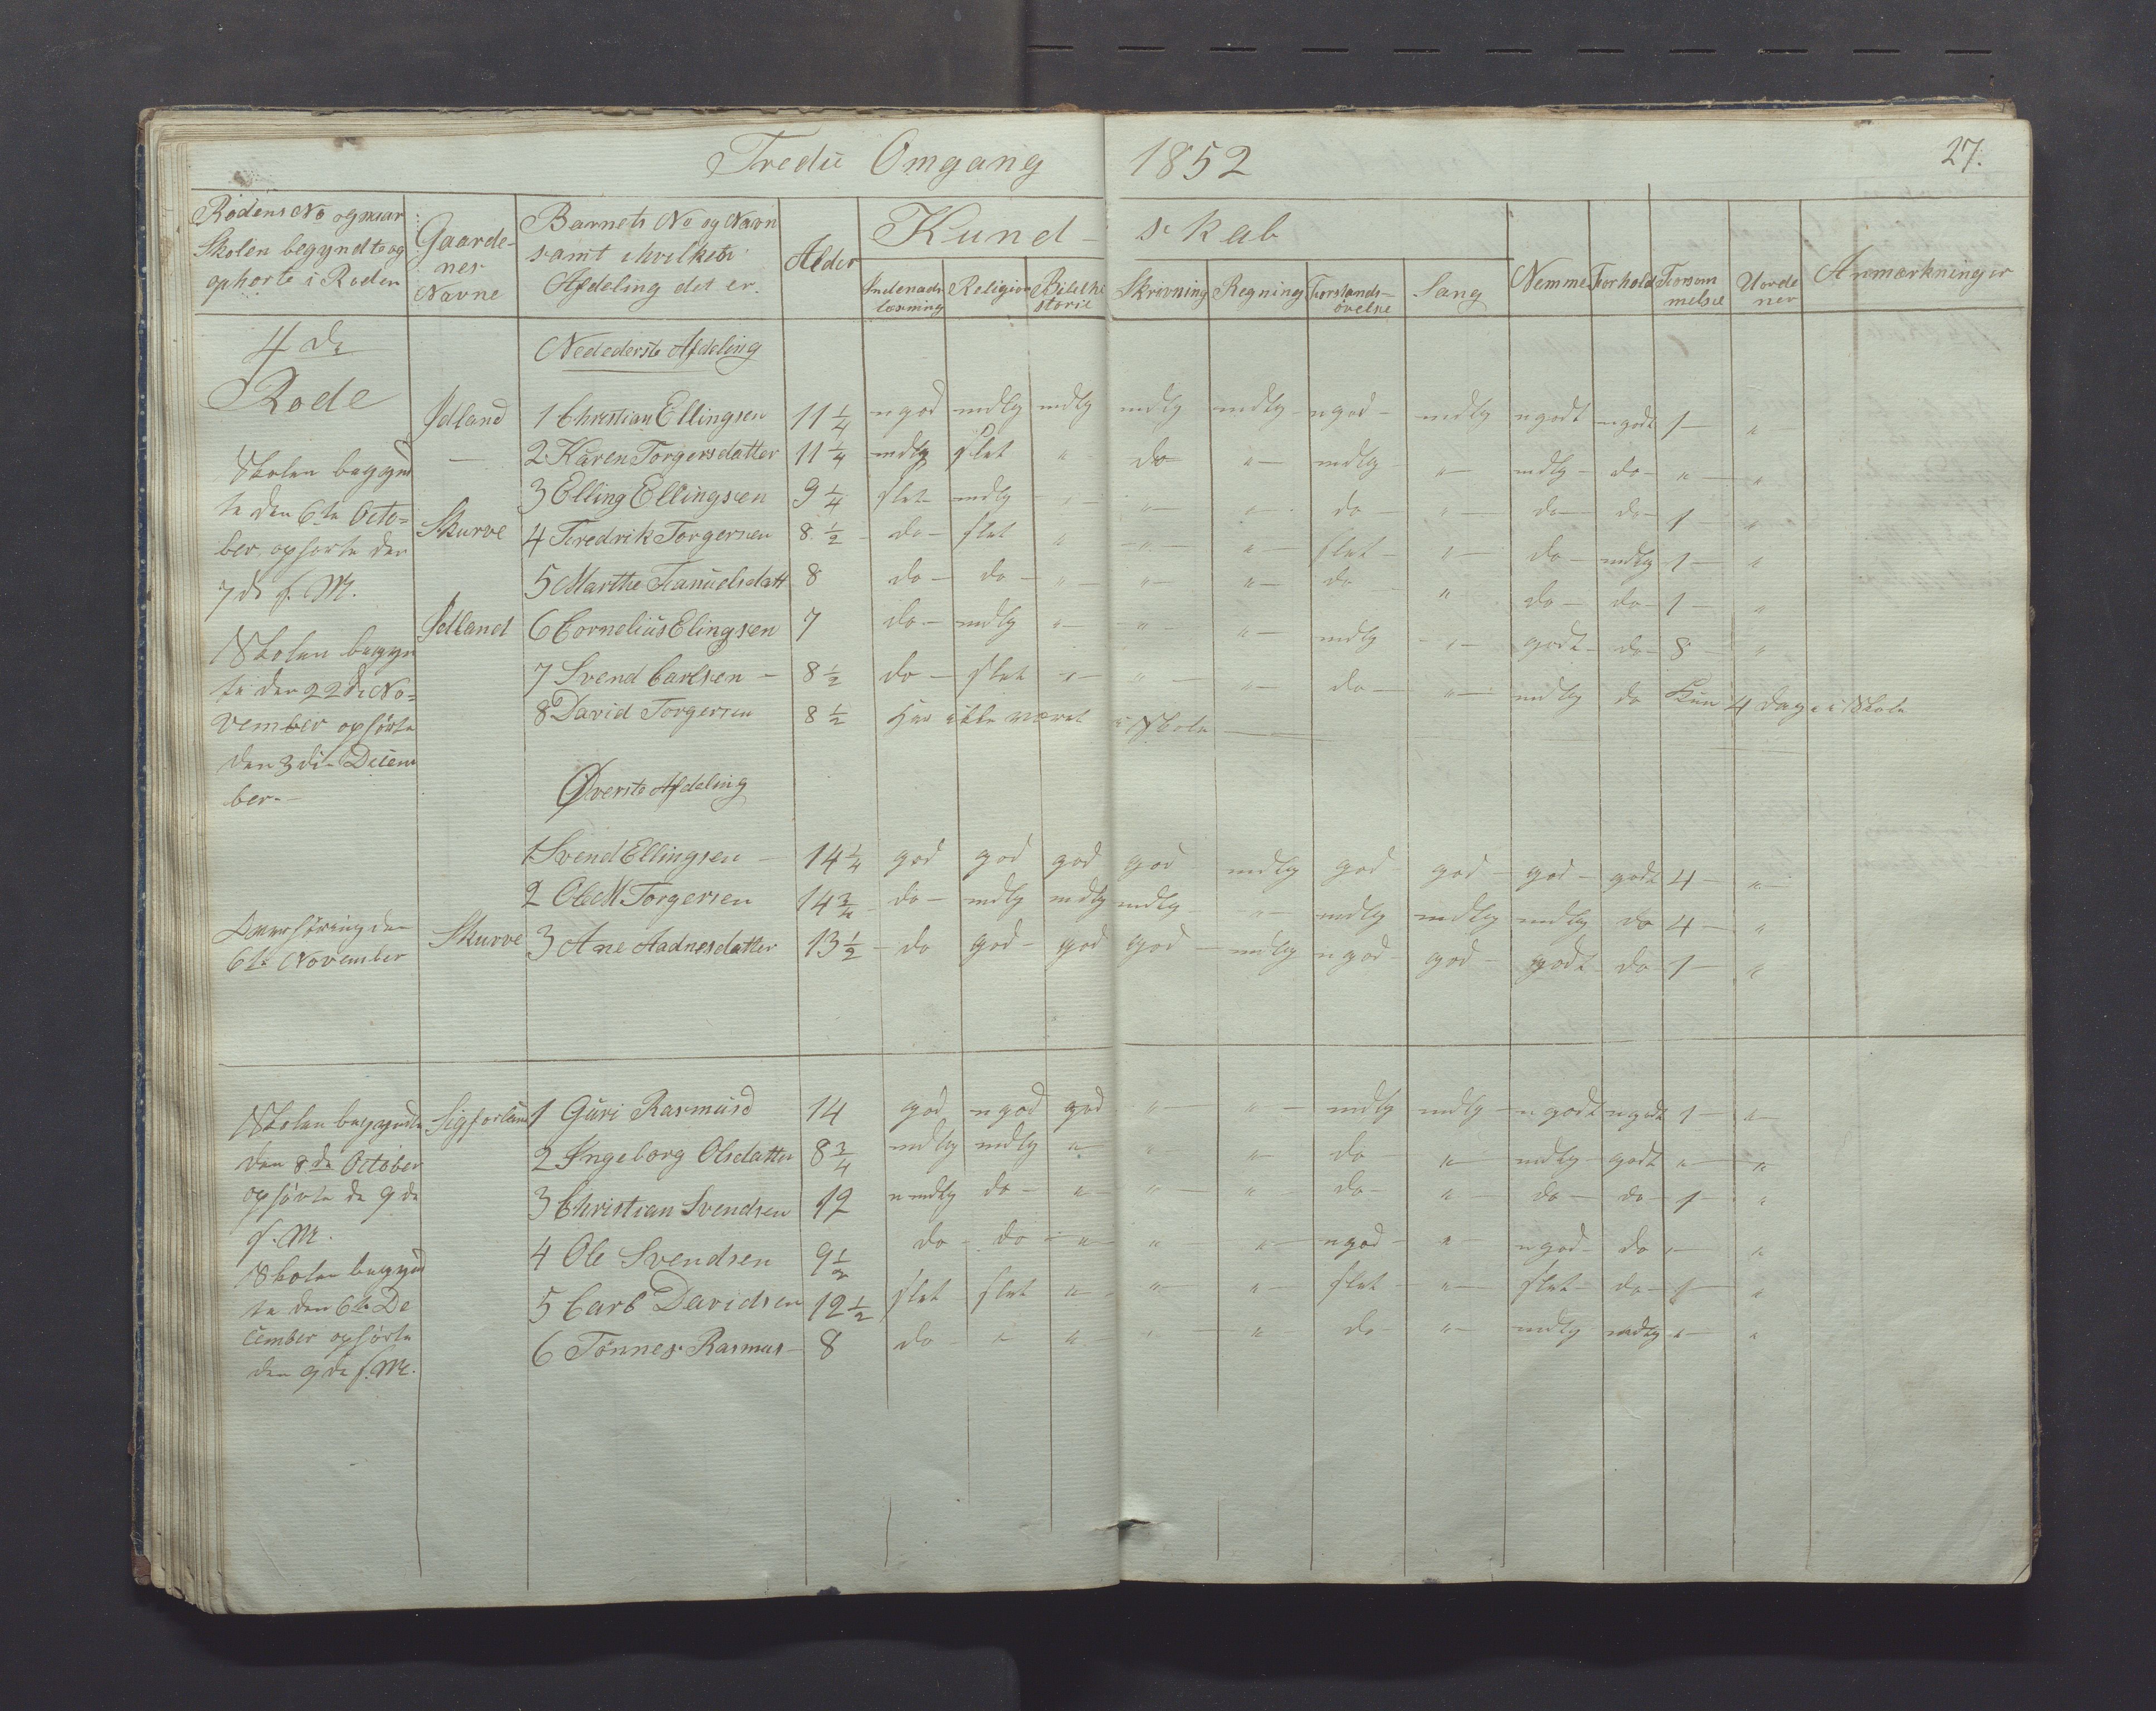 Tredie Omgang 1852 27.
Rodens No og naar Skolen begyndte og ophorte i Roden | Gaardenes Navne | Barnets No og Navn samt i hvilken Afdeling det er. | Alder | Kundskab | Nemme | Forhold | Forsommelse | Uordener | Anmærkninger
Indenadslæsning | Religion | Bibelhistorie | Skrivning | Regning | Forstandsøvelse | Sang
4de
Rode
Nedederste Afdeling
Jdland 1 Christian Ellingsen 11 1/4 ngod mdlg mdlg mdlg mdlg ngod mdlg ngodt ngodt 1 "
— 2 Karen Torgersdatter 11 1/4 mdlg slet " do " mdlg " mdlg do " "
Skolen begynd
te den 6te Octo=
ber ophorte den
7de s. M.
3 Elling Ellingsen 9 1/4 slet mdlg " " " do " do do 1 "
Skurve 4 Fredrik Torgersen 8 1/2 do slet " " " slet " do mdlg 1 "
5 Marthe Samuelsdatt 8 do do " " " do " do do 1 "
Jdland 6 Cornelius Elingsen 7 do mdlg " " " mdlg " godt do 8 "
Skolen begyn
te den 22de No=
vember ophørte
den 3die Decem
ber.
7 Svend Carlsen 8 1/2 do slet " " " do " mdlg do Kun 4 Dage i Skole
8 David Torgersen 8 1/2 Har ikke været i Skole
Øverste Afdeling
1 Svend Ellingsen 14 1/4 god god god god mdlg god god god godt 4 "
2 Ole M Torgersen 14 3/4 do mdlg mdlg mdlg " mdlg mdlg mdlg do 4 "
Skurve 3 Ane Aadnesdatter 13 1/2 do god god god mdlg ngod god godt do 1 "
Overhøring den
6te November
Skolen begyndte
den 8de October
ophørte de 9de
s. M.
Skolen begynd
te den 6te De
cember ophørte
den 9de s. M.
1 Guri Rasmusd 14 god ngod god " " mdlg mdlg ngodt ngodt 1 "
2 Ingeborg Olsdatter 8 3/4 mdlg mdlg " " " do " mdlg godt " "
3 Christian Svendsen 12 nmdlg do " " " do " do do 1 "
4 Ole Svendsen 9 1/2 do do " " " ngod " ngod do " "
5 Carl Davidsen 12 1/2 slet slet " " " slet " slet do 1 "
6 Tönnes Rasmus 8 do " " " " do " mdlg mdlg " "